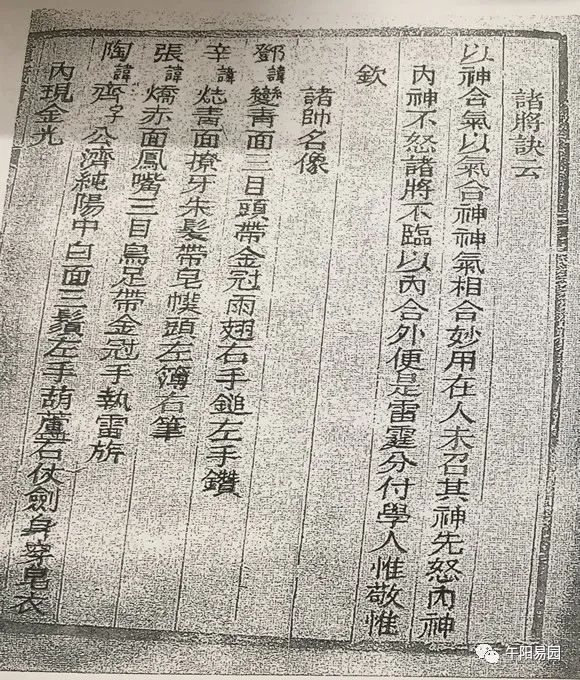 諸將訣云
以神合氣以氣合神神氣相合妙用在人未召其神先怒內神
內神不怒諸將不臨以內合外便是雷霆分付學人惟敬惟
欽
諸帥名像
鄧諱燮青面三目頭帶金冠雨翅右手鎚左手鑽
辛諱焋青面撩牙朱髮帶皂幞頭左簿右筆
張諱燆赤面鳳嘴三目鳥足帶金冠手執雷旂
陶諱齊字公濟純陽巾白面三鬚左手葫蘆右仗劍身穿皂衣
內現金光
午阳易园